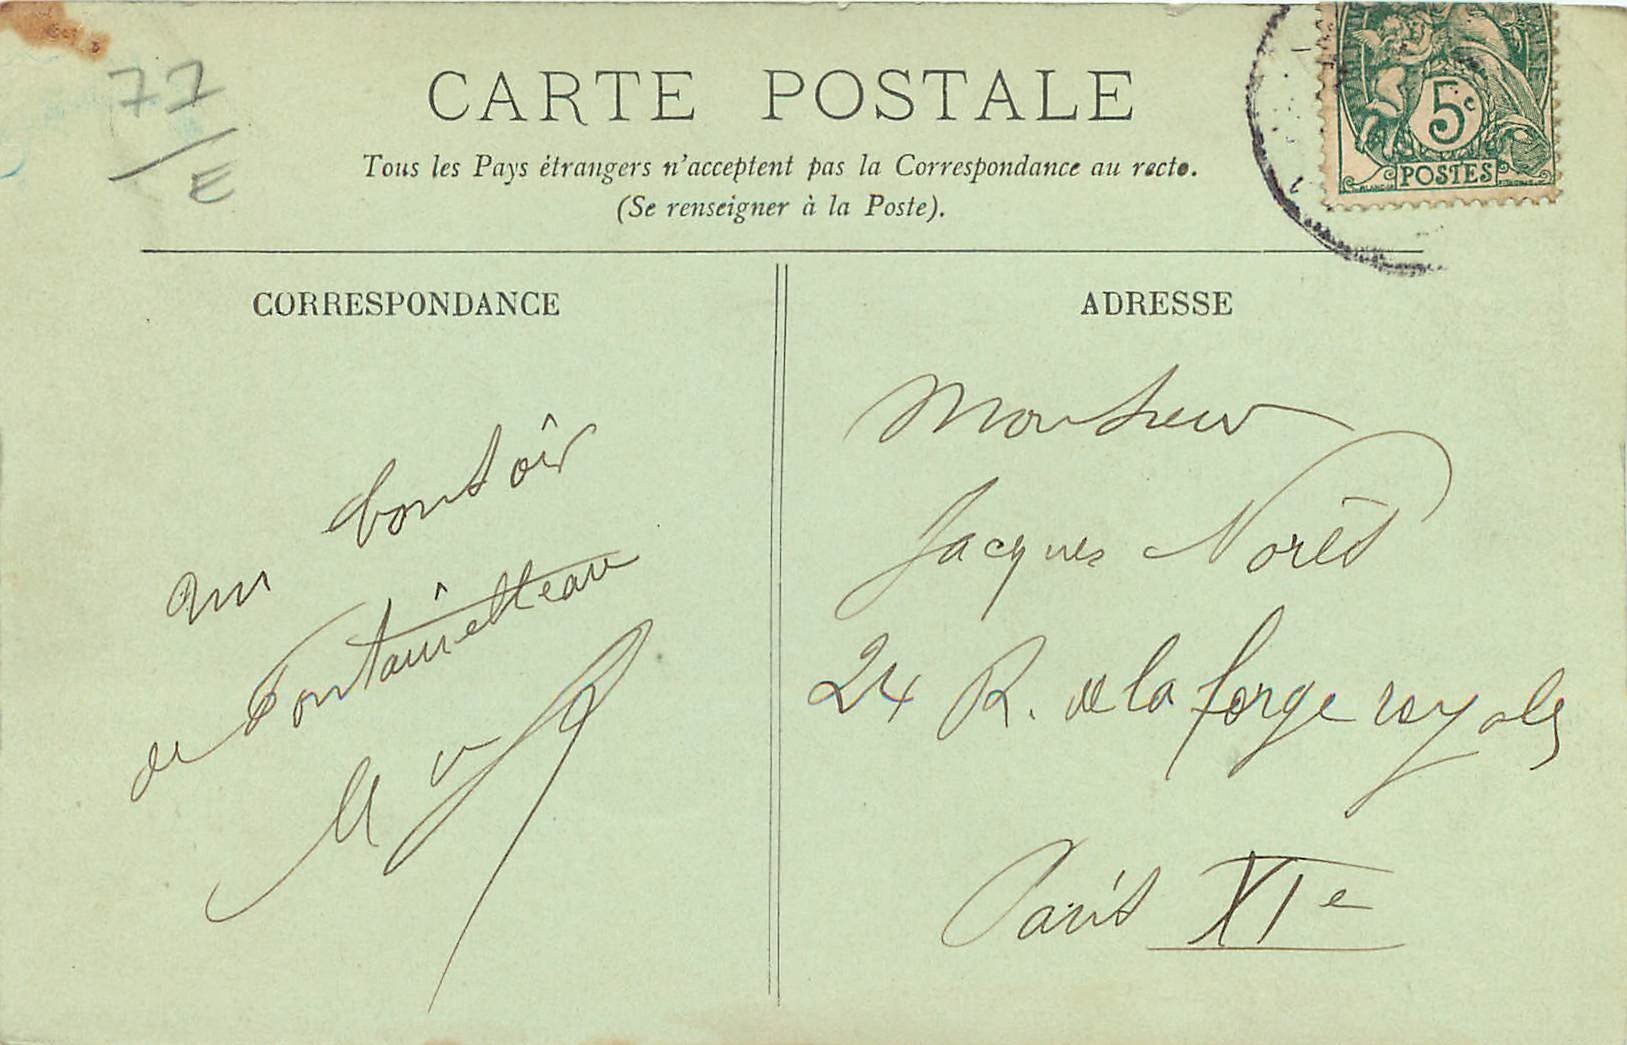 77
E
CARTE POSTALE
Tous les Pays étrangers n'acceptent pas la Correspondance au recto.
(Se renseigner à la Poste).
5c
POSTES
CORRESPONDANCE
un bonsoir
de
ADRESSE
Monsieur
Jacques Norès
24 R. de la forge royale
Paris XIe